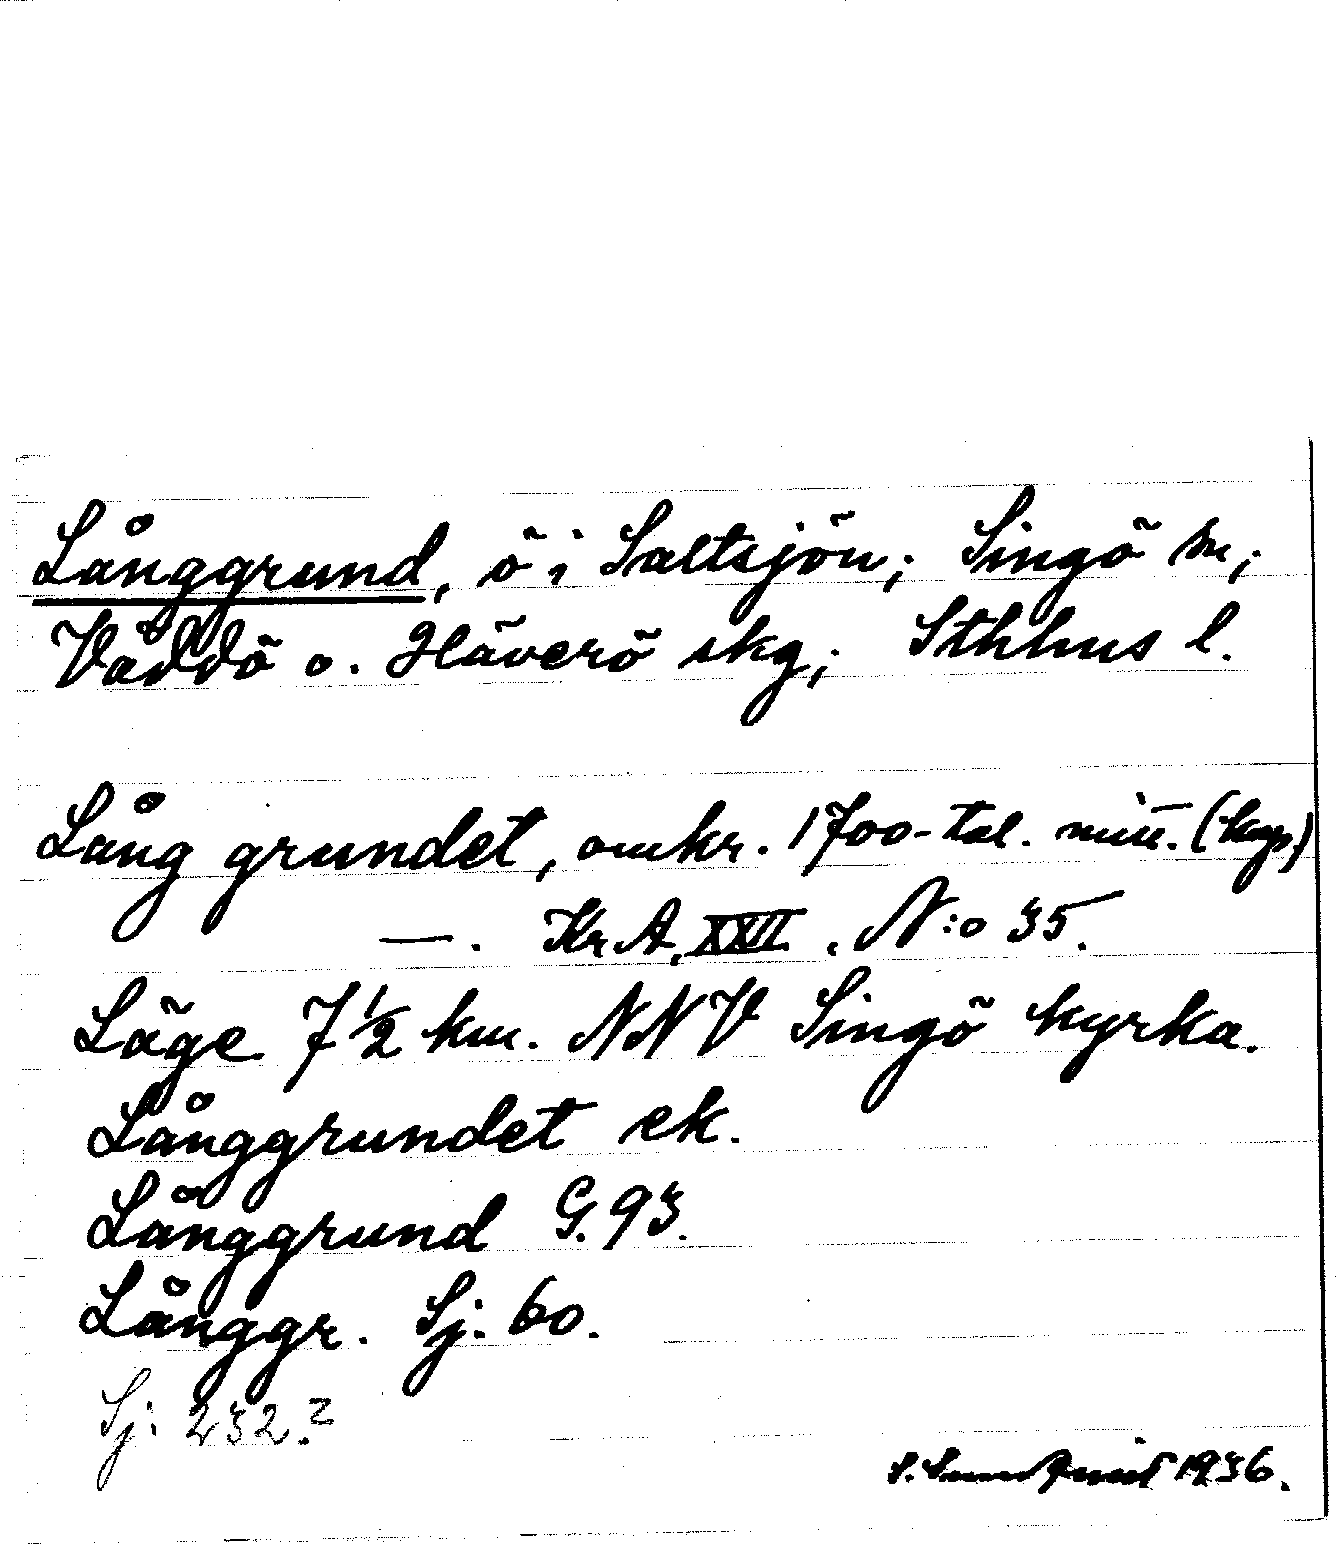 Långgrund, ö i Saltsjön; Singö sn;
Väddö o. Häverö skg; Sthlms l.
Lång grundet, omkr. 1700-tal. mitt. (kop)
—. Kr.A. XXVI. N:o 35.
Läge 7 ½ km. NNV Singö kyrka.
Långgrundet ek.
Långgrund G. 93.
Långgr. Sj: 60.
Sj: 232.²
S. Sundqvist 1936.